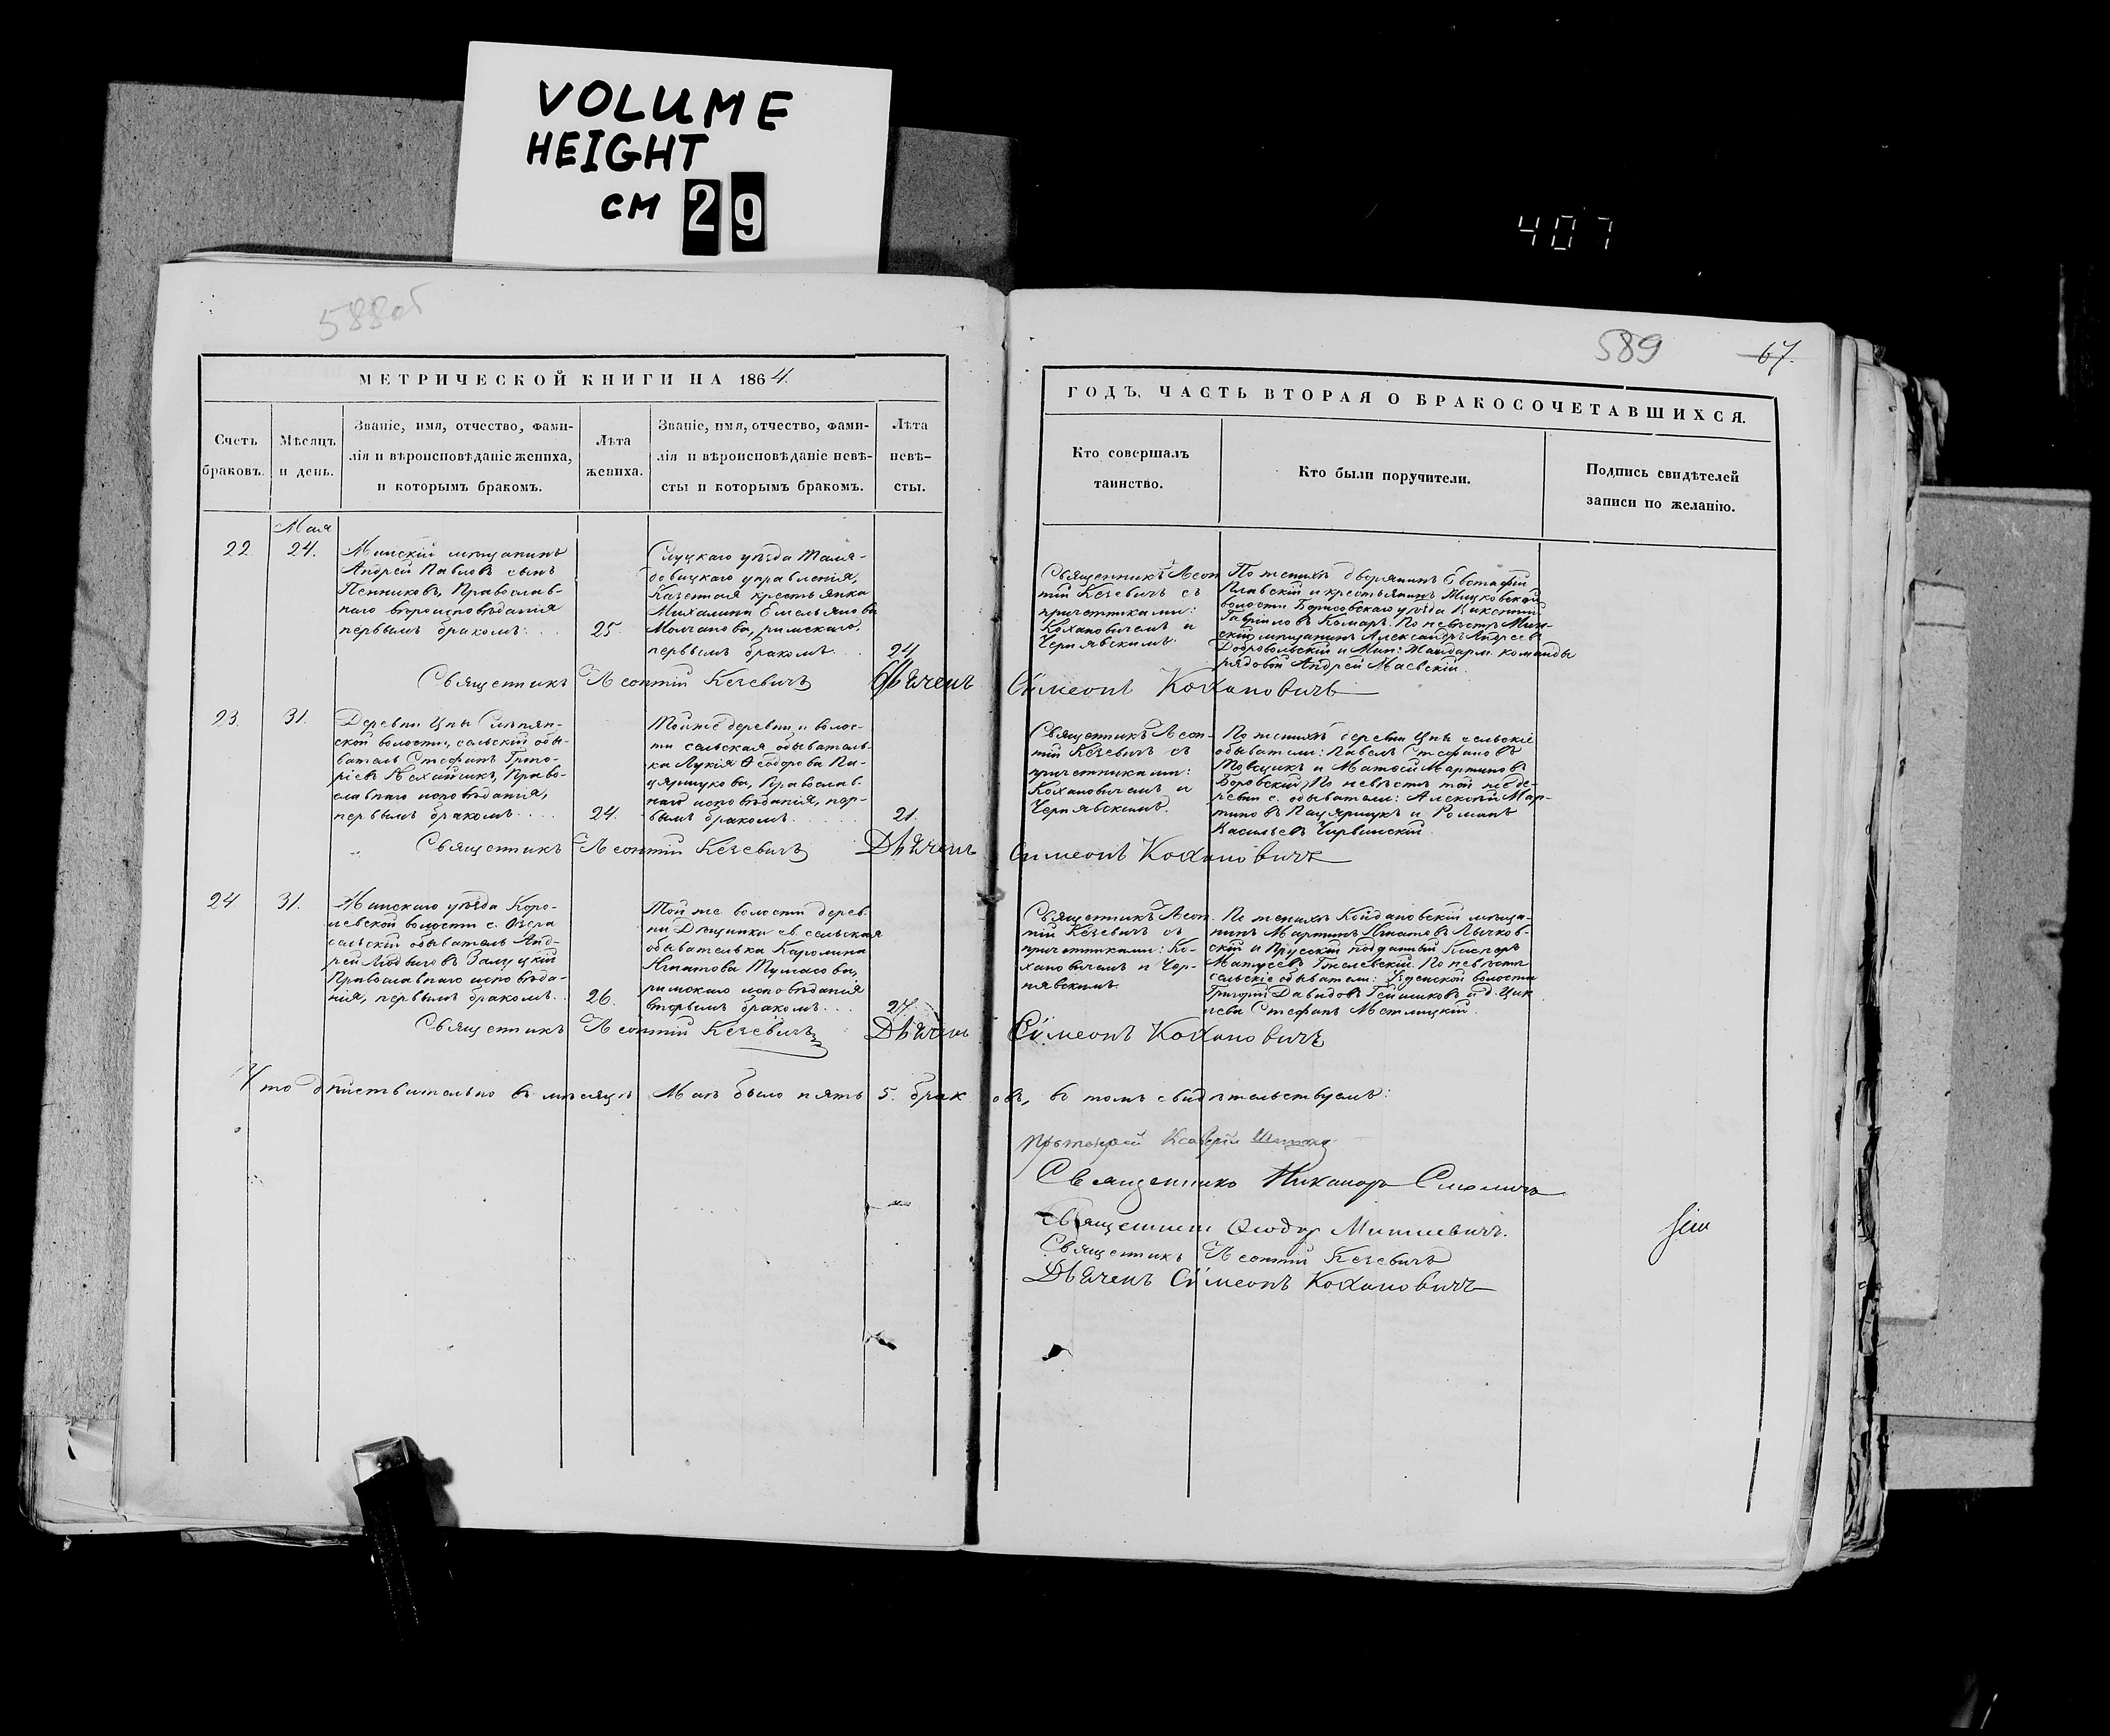 VOLUME
HEIGHT
CM 29
407
588об
589
67.
МЕТРИЧЕСКОЙ КНИГИ НА 1864.
Счетъ
браковъ.
Мѣсяцъ
и день.
Званіе, имя, отчество, фами-
лія и вѣроисповѣданіе жениха,
и которымъ бракомъ.
Лѣта
жениха.
Званіе, имя, отчество, фами-
лія и вѣроисповѣданіе невѣ-
сты и которымъ бракомъ.
Лѣта
невѣ-
сты.
ГОДЪ, ЧАСТЬ ВТОРАЯ О БРАКОСОЧЕТАВШИХСЯ.
Кто совершалъ
таинство.
Кто были поручители.
Подпись свидѣтелей
записи по желанію.
22.
Мая
24.
Минскій мѣщанинъ
Андрей Павловъ сынъ
Пенниковъ, Православ-
наго вѣроисповѣданія
первымъ бракомъ...
25.
Слуцкаго уѣзда
управленія,
Казенная крестьянка
Михалина Емельянова
Молчанова, римскаго,
первымъ бракомъ...
24
Священникъ Леон-
тій Кезевичъ съ
причетниками:
Кохановичемъ и
Чернявскимъ.
По женихѣ дворянинъ Евстафій
Плавскій и крестьянинъ
волости Борисовскаго уѣзда Викентій
Гаврилов Комаръ. По невѣстѣ Мин-
скій мѣщанинъ Александръ Андреевъ
Добровольскій и Мин: Жандарм. команды
рядовой Андрей Маевскій.
Священникъ Леонтій Кезевичъ Дьячекъ Сѵмеонъ Кохановичъ
23.
31.
Деревни Цны Слѣпян-
ской волости, сельскій обы-
ватель Стефанъ Григо-
ріевъ Православ-
славнаго исповѣданія,
первымъ бракомъ....
24.
Тойже деревни и волос-
ти сельская обыватель-
ка Лукія Ѳеодорова Па-
цярицкова, Православ-
наго исповѣданія, пер-
вымъ бракомъ.....
21.
Священникъ Леон-
тій Кезевичъ съ
причетниками:
Кохановичемъ и
Чернявскимъ.
По женихѣ деревни Цны сельскіе
обыватели: Павелъ Стефановъ
и Матвей Мартиновъ
Боровскій, По невѣстѣ той же де-
ревни с. обыватели: Алексѣй Мар-
тиновъ и Романъ
Васильевъ Чирвинскій.
Священникъ Леонтій Кезевичъ Дьячекъ Симеонъ Кохановичъ
24
31.
Минскаго уѣзда Коро-
левской волости с. Озера
сельскій обыватель Анд-
рей Людвиговъ Залуцкій
Православнаго исповѣда-
нія, первымъ бракомъ..
26.
Той же волости дерев-
ни св. сельская
обывателька Каролина
Игнатова Тумасова,
римскаго исповѣданія
вторымъ бракомъ...
27.
Священникъ Леон-
тій Кезевичъ съ
причетниками: Ко-
хановичемъ и Чер-
нявскимъ.
По женихѣ Койдановскій мѣща-
нинъ Мартинъ Игнатовъ Лычков-
скій и Прусскій подданный Каспоръ
Матусевъ По невѣстѣ
сельскіе обыватели: Узденской волости
Григорій Давидовъ и д.
Стефанъ Метлицкій.
Священникъ Леонтій Кезевичъ Дьячекъ Сѵмеонъ Кохановичъ
Что дѣйствительно въ мѣсяцѣ Маѣ было пять 5. браковъ, въ томъ свидѣтельствуемъ:
Протоіерей Ксаверій
Священникъ Никаноръ Смоличъ
Священникъ Ѳеодоръ Мицкевичъ.
Священникъ Леонтій Кезевичъ
Дьячекъ Сѵмеонъ Кохановичъ